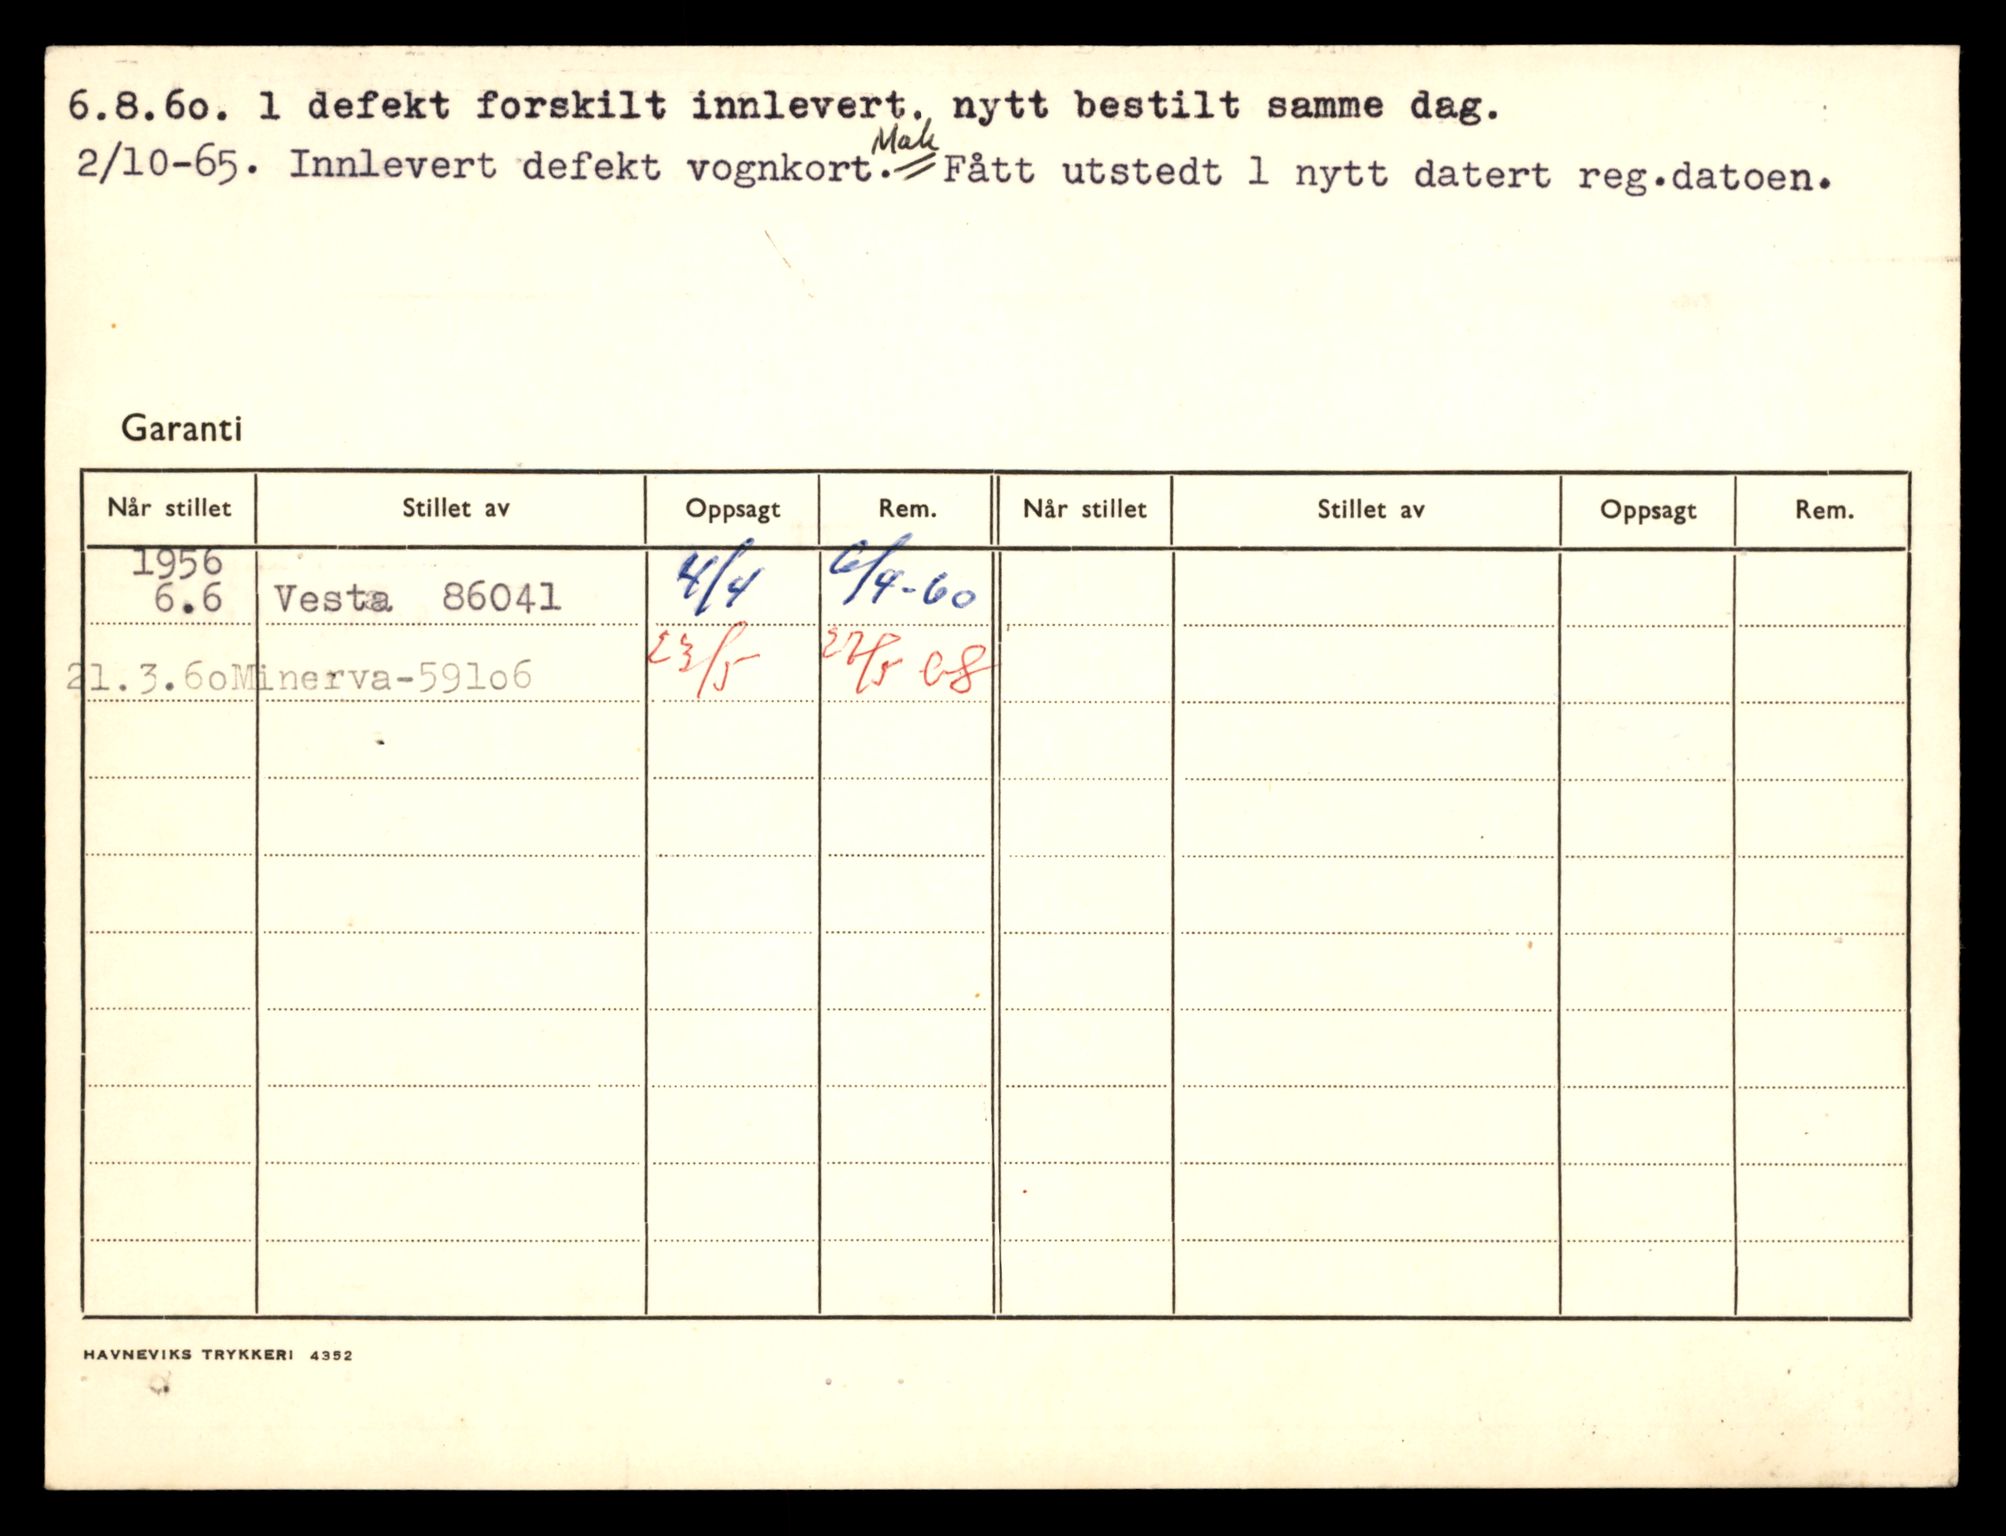 6.8.6o. 1 defekt forskilt innlevert. nytt bestilt samme dag.
Mak
2/10-65. Innlevert defekt vognkort. Fått utstedt 1 nytt datert reg.datoen.
Garanti
Når stillet Stillet av Oppsagt Rem. Når stillet Stillet av Oppsagt Rem.
1956
6.6 Vesta 86041 4/4 6/4-60
21.3.6o Minerva-591o6 23/5 27/5 68
HAVNEVIKS TRYKKERI 4352